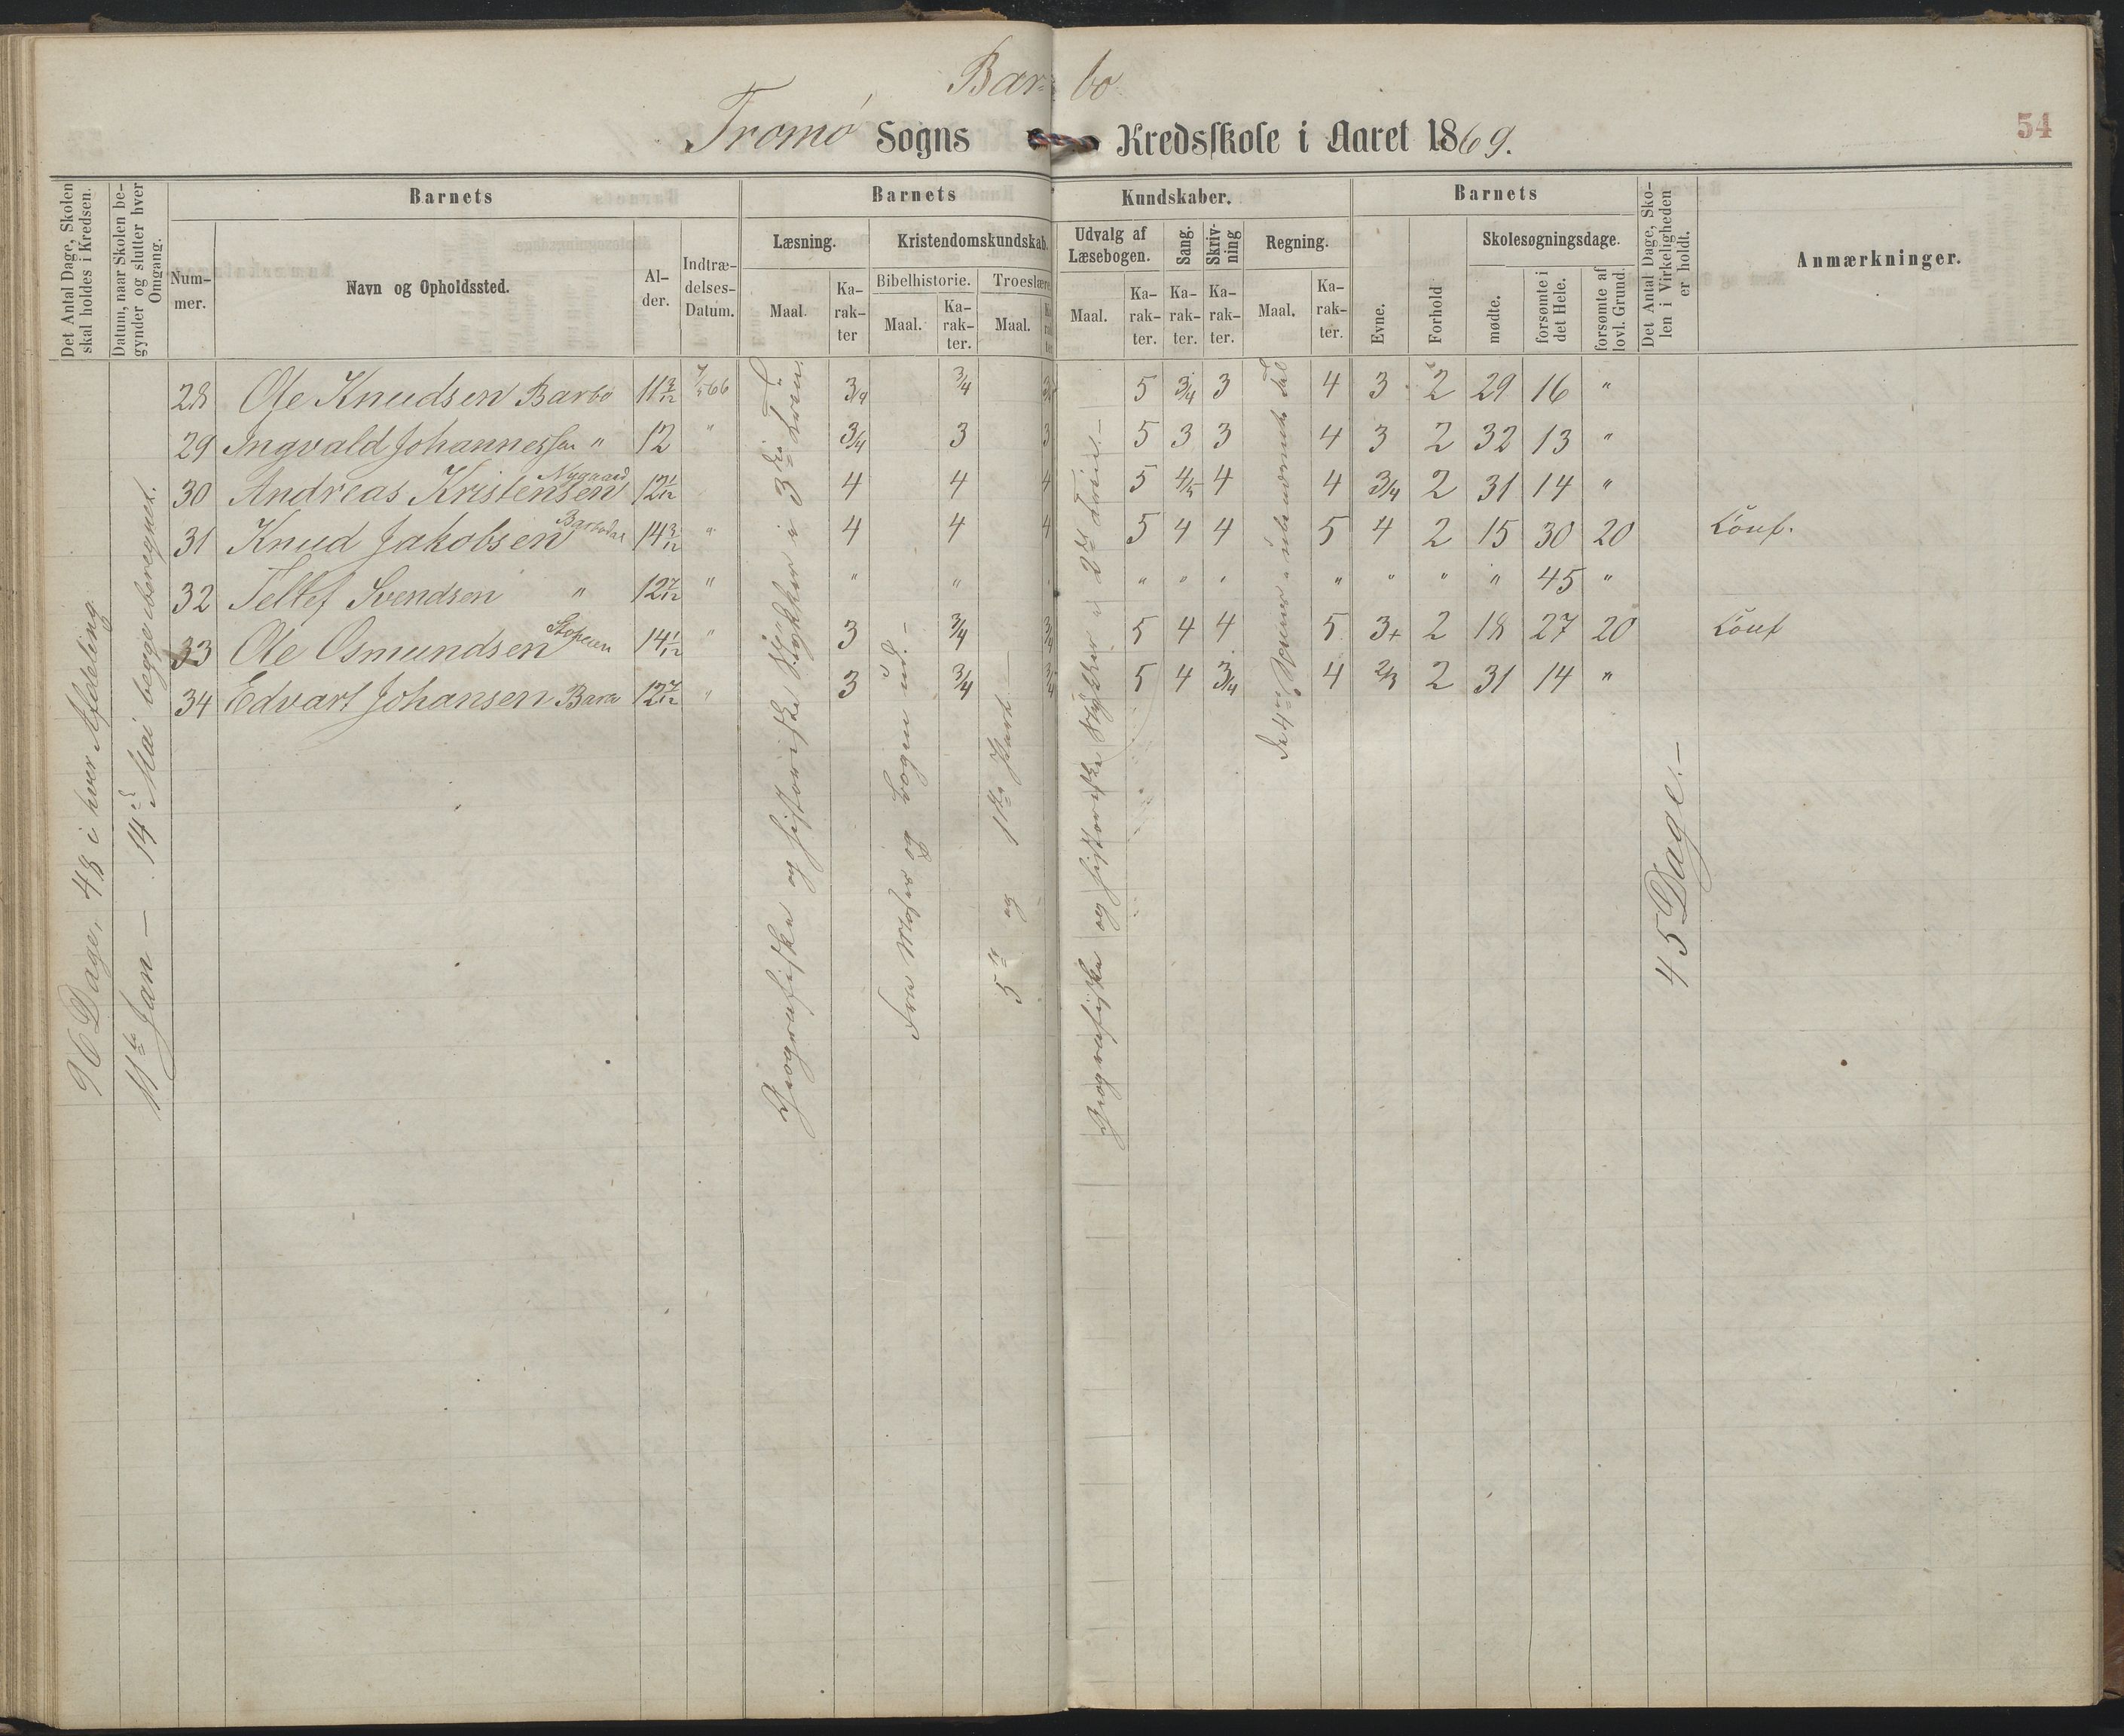 Bar- bo
Tromø Sogns Kredsskole i Aaret 1869.
54
Det Antal Dage, Skolen skal holdes i Kredsen.
Datum, naar Skolen begynder og slutter hver Omgang.
Barnets
Nummer.
Navn og Opholdssted.
Alder.
Indtrædelses-Datum.
Barnets Kundskaber.
Læsning.
Maal.
Karakter
Kristendomskundskab.
Bibelhistorie.
Maal.
Karakter.
Troeslære
Maal.
Udvalg af Læsebogen.
Maal.
Karakter.
Sang.
Karakter.
Skrivning
Karakter.
Regning.
Maal.
Karakter.
Barnets
Evne.
Forhold
Skolesøgningsdage.
mødte.
forsømte i det Hele.
forsømte af lovl. Grund.
Det Antal Dage, Skolen i Virkeligheden er holdt.
Anmærkninger.
28 Ole Knudsen Barbo 11 3/12 7/5 66 3/4 3/4 3/4 5 3/4 3 4 3 2 29 16 "
29 Ingvald Johannessen " 12 " 3/4 3 3 5 3 3 4 3 2 32 13 "
30 Andreas Kristensen Nygaard 12 1/12 4 4 4 5 4/5 4 4 3/4 2 31 14 "
31 Knud Jakobsen Barbodal 14 3/12 " 4 4 4 5 4 4 5 4 2 15 30 20 Conf.
32 Tellef Svendsen " 12 7/12 " " " " " " " " " " " 45 "
33 Ole Osmundsen 14 1/12 " 3 3/4 3/4 5 4 4 5 3+ 2 18 27 20 Conf
34 Edvart Johansen 12 7/12 " 3 3/4 3/4 5 4 3/4 4 2/3 2 31 14 "
96 Dage, 48 i hver Afdeling
11te Jan – 14de Mai begge iberegnet.
Geografiske og historiske Stykker i 3die Trin.
Fra Moses og Bogen ud.–
5te og 1ste Part –
Geografiske og historiske Stykker i 2det Trin.–
45 Dage.–